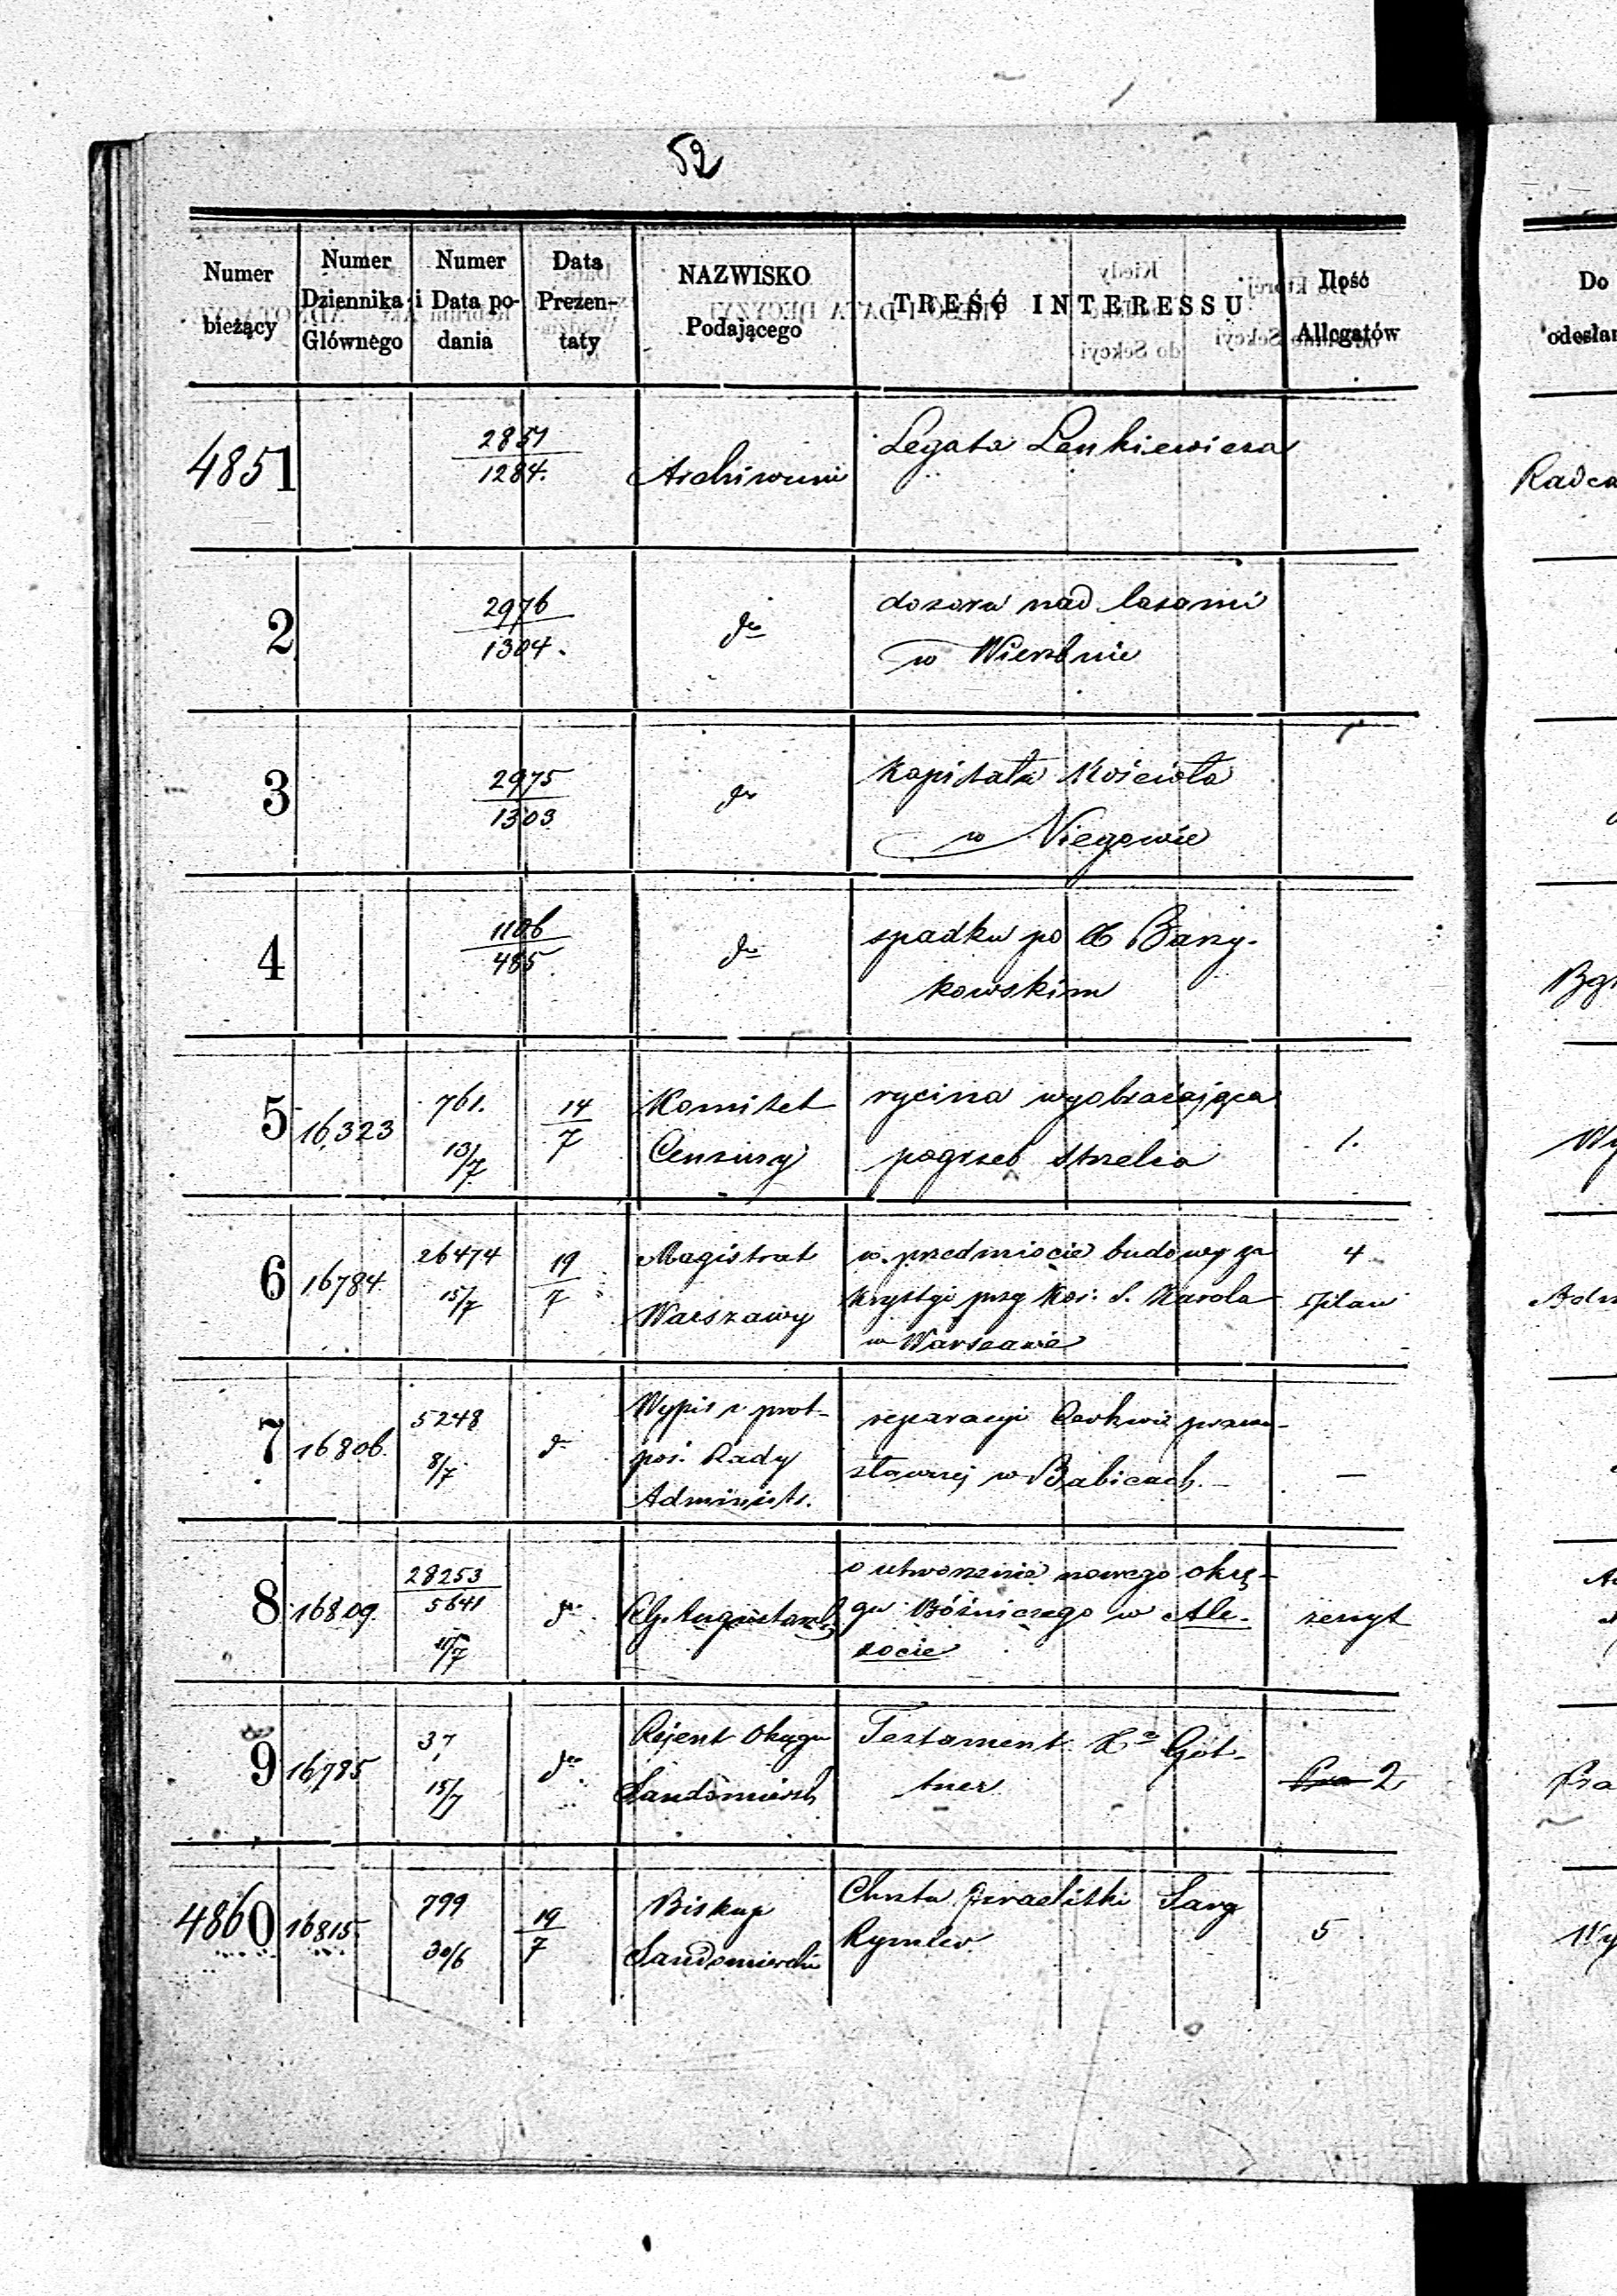 52
Numer bieżący
Numer Dziennika Głównego
Numer i Data podania
Data Prezentaty
NAZWISKO Podającego
TREŚĆ INTERESSU
Ilość Allegatów
4851
2851
1284.
Archiwum
Legatu Lenkiewicza
2
2976
1304.
do
dozoru nad lasami
w Wierzbnie
3
2975
1303
do
Kapitału Kościoła
w Niegowie
4
1106
485
do
spadku po
kowskim
5
16323
761.
13/7
14
7
Komitet
Cenzury
rycina wyobrażająca
pogrzeb strzelca
1.
6
16784.
26474
15/7
19
7
Magistrat
Warszawy
w przedmiocie budowy za
krystyi przy Koś: S. Karola
w Warszawie
4
7
16806.
5248
8/7
do
Wypis z prot-
pos. Rady
Administr.
reparacyi Cerkwi prawo-
sławnej w Babicach.
—
8
16809.
28253
5641
do
o utworzenie nowego okrę-
gu Bóżniczego w Ale-
xocie
zeszyt
9
16785
37
15/7
do
Rejent Okręgu
Sandomiersk
Testament
Got-
tner
2
4860
16815.
799
30/6
19
7
Biskup
Sandomierski
Chrztu Izraelitki Sary
5
Do
odesłan
Radca